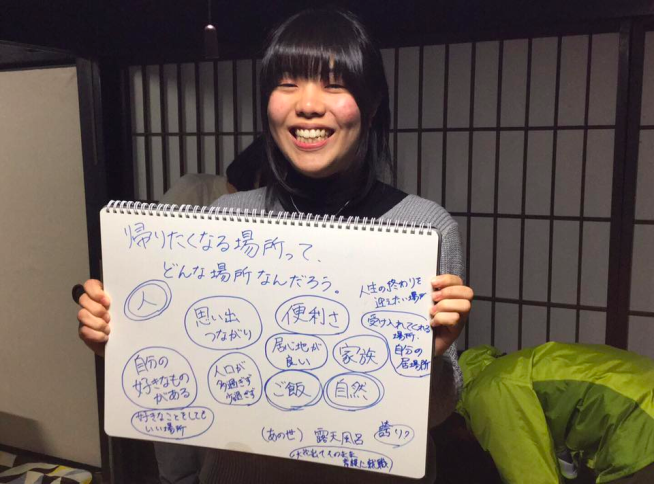 帰りたくなる場所って、
どんな場所なんだろう。
人
思い出
つながり
便利さ
人生の終わりを
迎えたい場所
受け入れてくれる
場所
自分の
居場所
居心地が
良い
家族
自分の
好きなもの
がある
人口が
多過ぎず
ご飯
自然
好きなことをしても
いい場所
(あのせ)
露天風呂
誇り